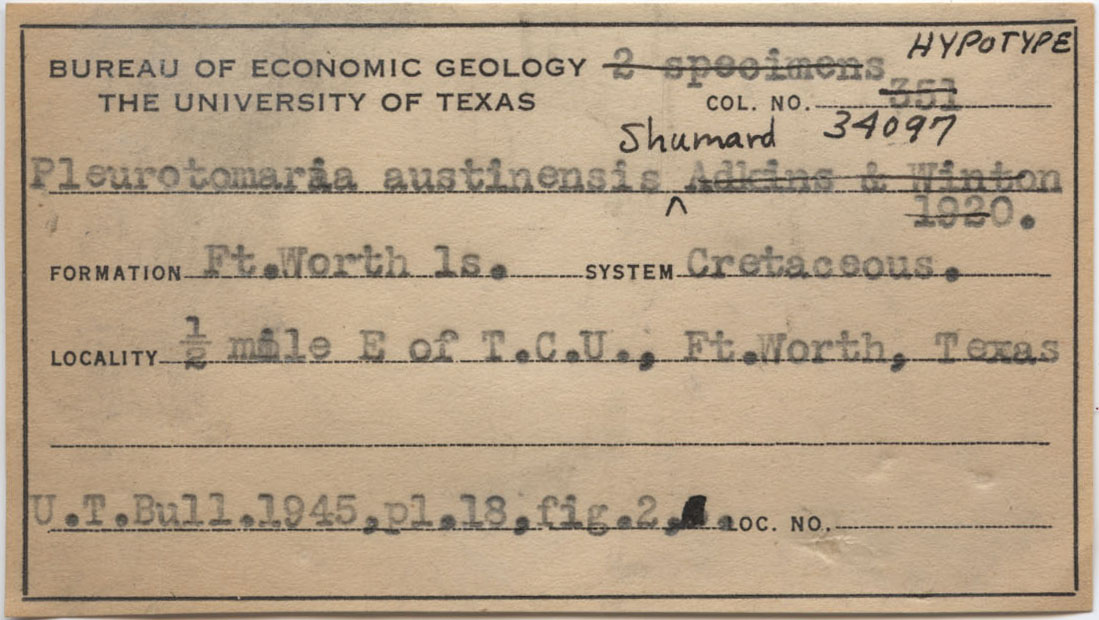 HYPOTYPE
BUREAU OF ECONOMIC GEOLOGY 2 specimens
THE UNIVERSITY OF TEXAS COL. NO. 351
Shumard 34097
Pleurotomaria austinensis ^ Adkins & Winton
1920.
FORMATION Ft.Worth ls. SYSTEM Cretaceous.
LOCALITY ½ mile E of T.C.U., Ft.Worth, Texas
U.T.Bull.1945,pl.18,fig.2, . LOC. NO.